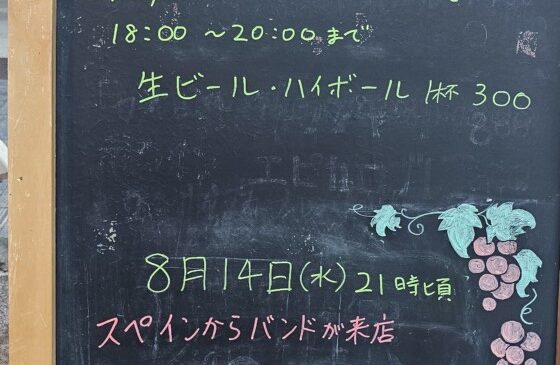 18:00 ～20:00まで
生ビール・ハイボール 1杯 300
8月14日(水)21時頃
スペインからバンドが来店